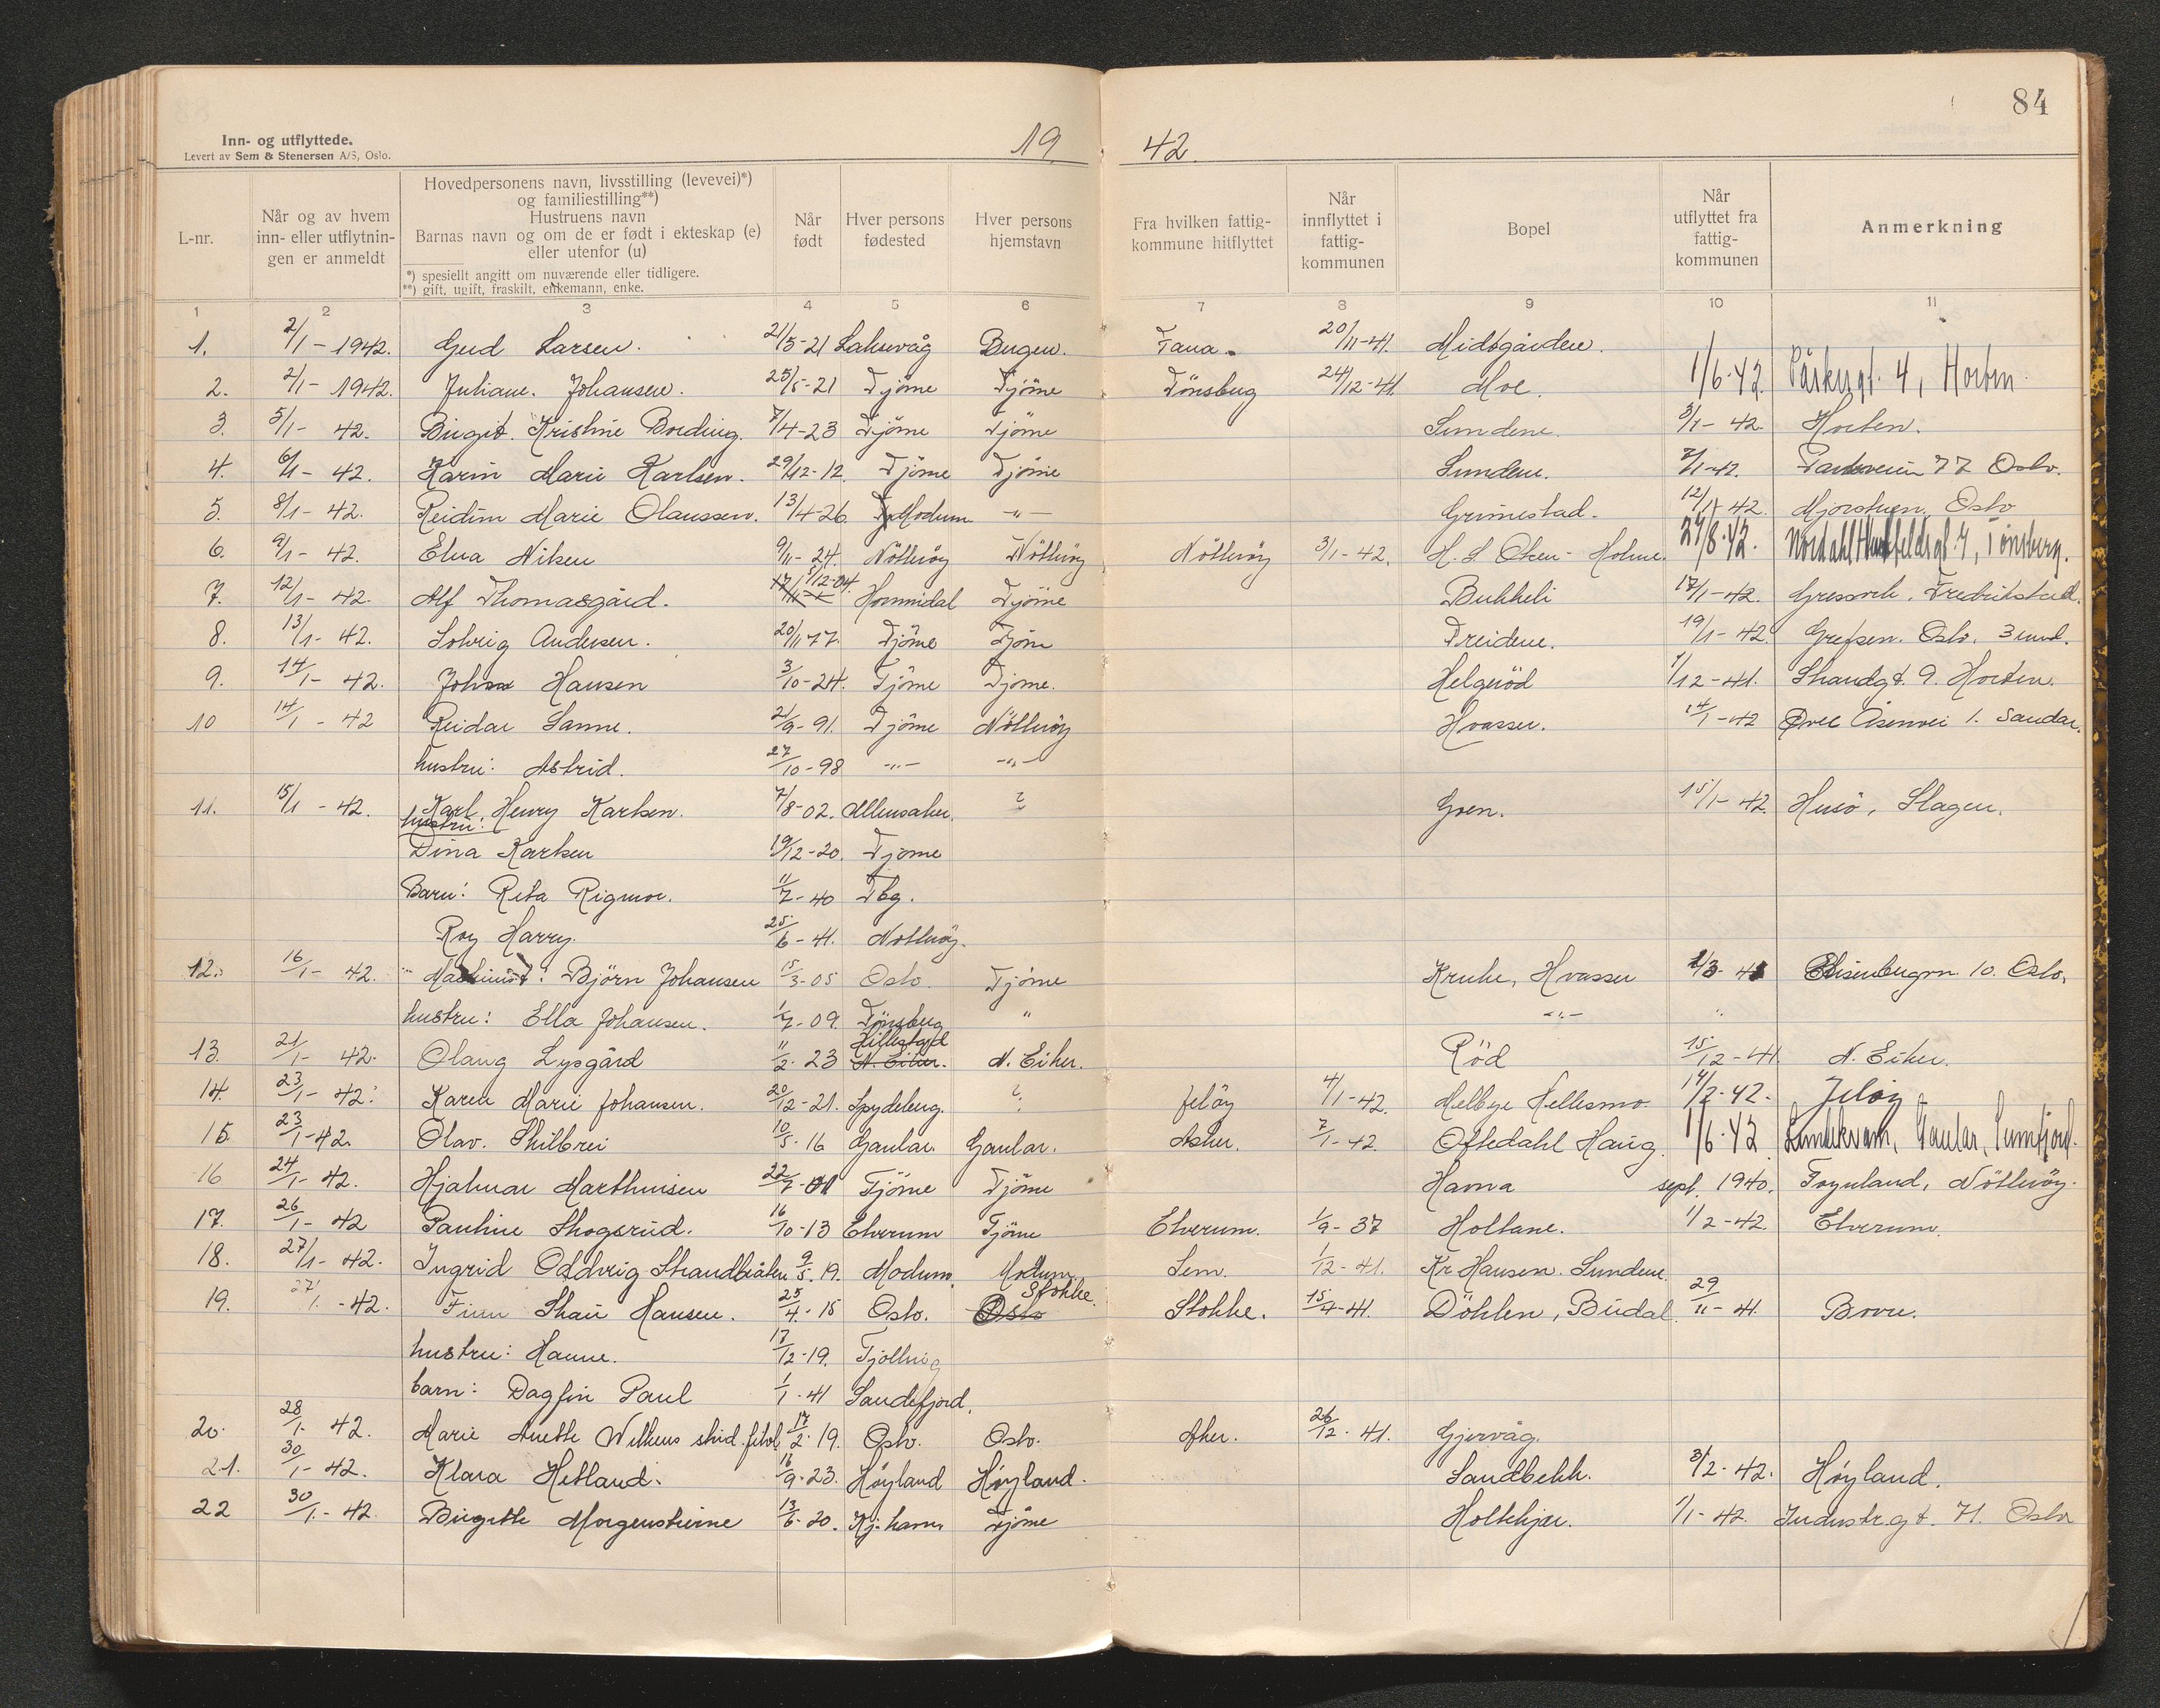 84
Inn- og utflyttede.
Levert av Sem & Stenersen A/S, Oslo.
19 42.
L-nr. | Når og av hvem inn- eller utflytningen er anmeldt | Hovedpersonens navn, livsstilling (levevei)*) og familiestilling**) Hustruens navn Barnas navn og om de er født i ekteskap (e) eller utenfor (u) *) spesiellt angitt om nuværende eller tidligere. **) gift, ugift, fraskilt, enkemann, enke. | Når født | Hver persons fødested | Hver persons hjemstavn | Fra hvilken fattigkommune hitflyttet | Når innflyttet i fattigkommunen | Bopel | Når utflyttet fra fattigkommunen | Anmerkning
1 2 3 4 5 6 7 8 9 10 11
1. 2/1 - 1942. Gud Larsen. 21/5-21 Laksevåg Bergen. Fana. 20/11-41. Midtgården.
2. 2/1 - 1942. Juliane. Johansen. 25/5-21 Tjöme Tjöme Tönsberg 24/12-41. Moe. 1/6-42. Parkgt. 4, Horten.
3. 5/1 - 42. Birgit. Kristine Bording. 7/4-23 Tjöme Tjöme Sundene. 3/1 - 42. Horten.
4. 6/1 - 42. Karin Marie Karlsen. 29/12-12. Tjöme Tjöme Sundene. 7/1-42. Parkveien 77 Oslo.
5. 8/1 - 42. Reidun Marie Olaussen. 13/4-26. Modum -"- Grimestad. 12/1 42. Mjorstuen, Oslo
6. 9/1 - 42. Elna Nilsen 9/11 - 24. Nötteröy Nötteröy Nötteröy 3/1-42. H. S. Olsen - Holme. 27/8-42. Tönsberg.
7. 12/1 - 42. Alf Thomasgård. 5/12-04. Hornnidal Tjöme Bukkeli 17/1-42. Gressvik, Fredrikstad.
8. 13/1 - 42. Solveig Andersen. 20/11 77. Tjöme Tjöm Treidene. 19/1 - 42 Grefsen. Oslo. 3 und.
9. 14/1 - 42. Johan Hansen 3/10-24. Tjöme Tjöme. Helgeröd 1/12-41. Strandgt. 9. Horten.
10 14/1 - 42 Reidar Sanne. 21/9-91. Tjöme Nötteröy Hvasser. 14/1-42 Övre Åsenvei 1. Sandar.
hustru: Astrid. 27/10-98 -"- -"-
11. 15/1 - 42. Karl. Henry Karlsen. 7/8-02. Ullensaker. ? Gren. 15/1-42. Husö, Slagen.
hustru:
Dina Karlsen 19/12-20. Tjöme
Barn: Reta Rigmor. 11/7-40 Tbg.
Roy Harry. 25/6-41. Nötteröy.
12. 16/1 - 42. Maskinist: Björn Johansen 15/3-05 Oslo. Tjöme Kruke, Hvasser 1/3-41 Elisenbergvn 10. Oslo.
hustru: Ella Johansen. 1/7-09. Tönsberg " -"- "
13. 21/1 - 42. Olaug Lysgård 11/2. 23 N. Eiker. N. Eiker. Röd 15/12-41. N. Eiker.
14. 23/1 - 42. Karen Marie Johansen. 20/12-21. Spydeberg. ? Jelöy 4/1-42. Melbye Hellesmo. 14/2-42. Jelöy
15. 23/1-42. Olav. Skilbrei 10/5. 16 Gaular. Gaular. Asker. 7/1-42. Oftedahl Haug. 1/6-42 Gaular, Sunnfjord.
16 24/1 - 42. Hjalmar Marthinsen 22/7-01 Tjöme Tjöme Havna sept. 1940. Föynland, Nötteröy.
17. 26/1 - 42 Pauline Skogsrud. 16/10-13 Elverum Tjöme Elverum. 1/9-37 Holtane. 1/2-42 Elverum.
18. 27/1 - 42. Ingrid Oddveig Strandbråten 9/5. 19. Modum. Modum. Sem. 1/12-41. Kr. Hansen. Sundene.
19. 27/1 - 42. Finn Skau Hansen. 25/4. 15 Oslo. Oslo Stokke. Stokke. 15/7-41. Döhlen, Budal. 29/11-41. Borre.
hustru: Hanne. 17/12-19. Tjölling
barn: Dagfin Paul 1/1. 41 Sandefjord.
20. 28/1. 42. Marie Anette Wilkens stud. filol. 17/2. 19. Oslo. Oslo. Aker. 26/12. 41. Gjervåg.
21. 30/1 - 42. Klara Hetland. 16/9-23. Höyland Höyland. Sandbekk. 3/2-42. Höyland.
22 30/1 - 42. Birgitte Morgenstierne 13/6-20. Kj.havn Tjöme Holtekjær. 1/1-42. Industrgt. 71. Oslo